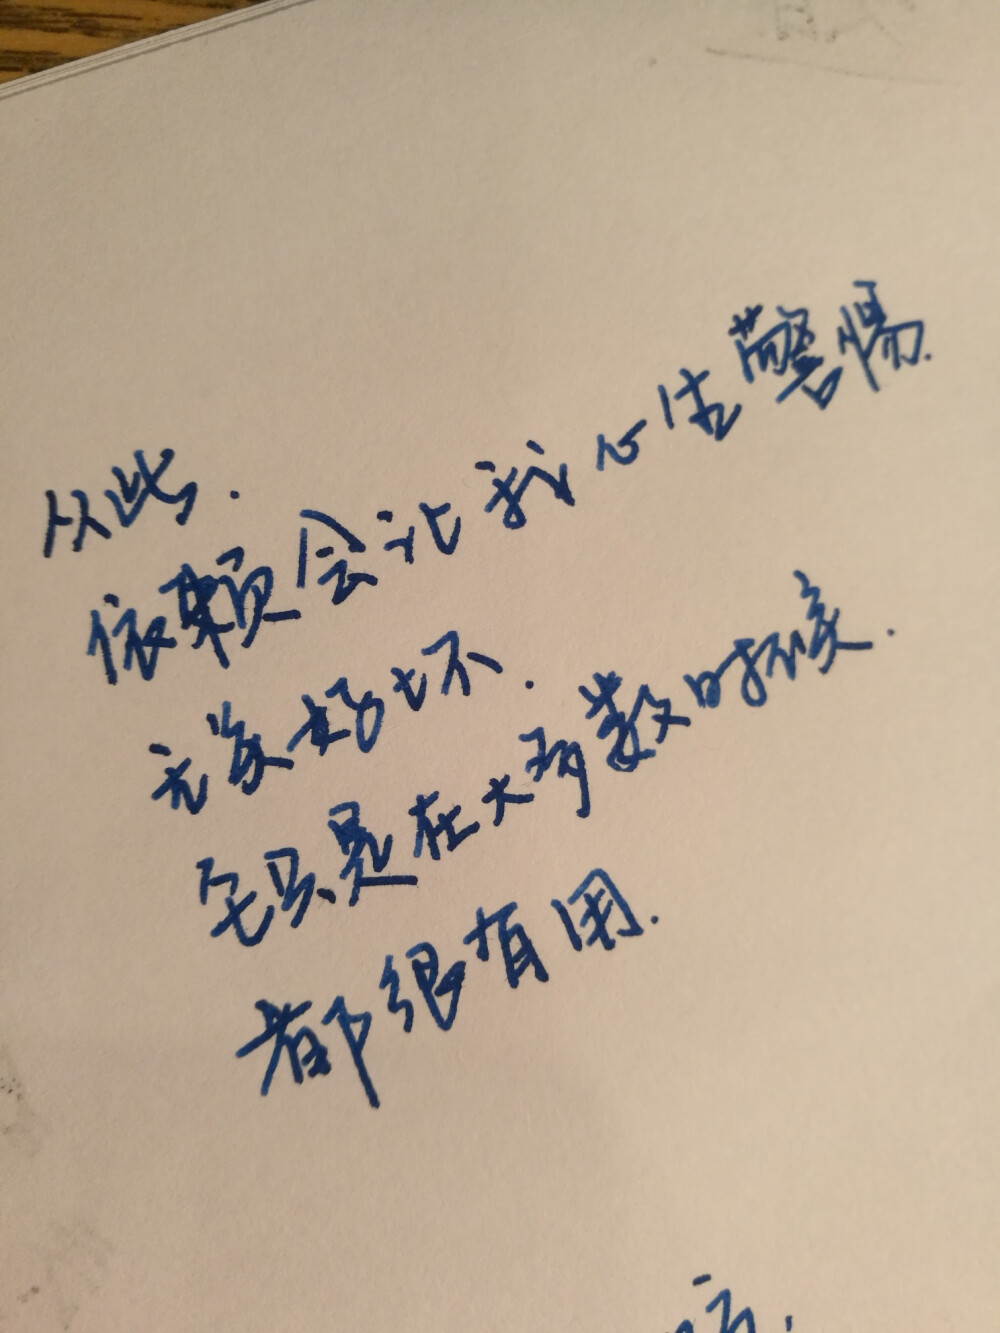 从此.
依赖会让我心生警惕.
无关好坏.
它只是在大多数时候.
都很有用.